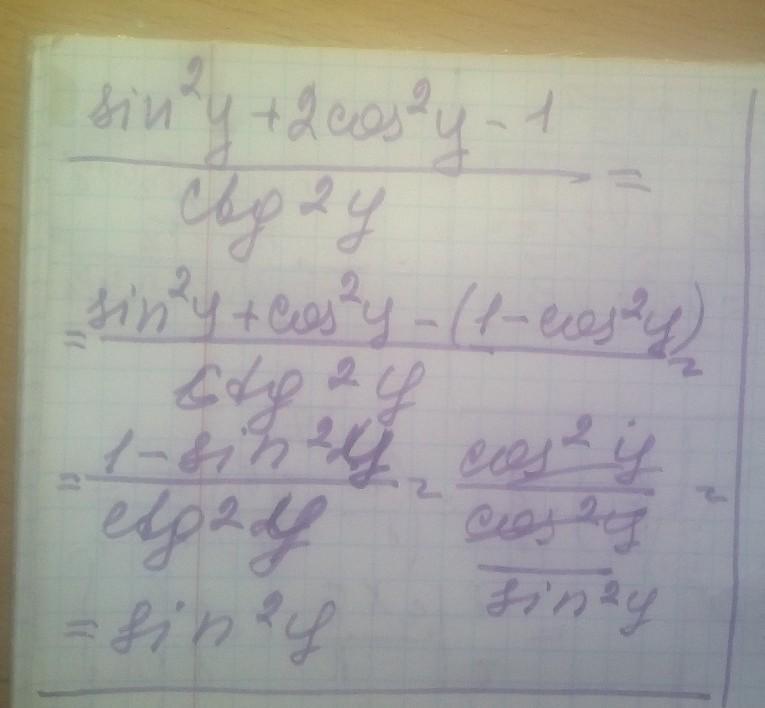 sin²y + 2cos²y - 1
=
ctg²y
= sin²y + cos²y - (1 - cos²y) =
ctg²y
= 1 - sin²y = cos²y =
ctg²y cos²y
sin²y
= sin²y